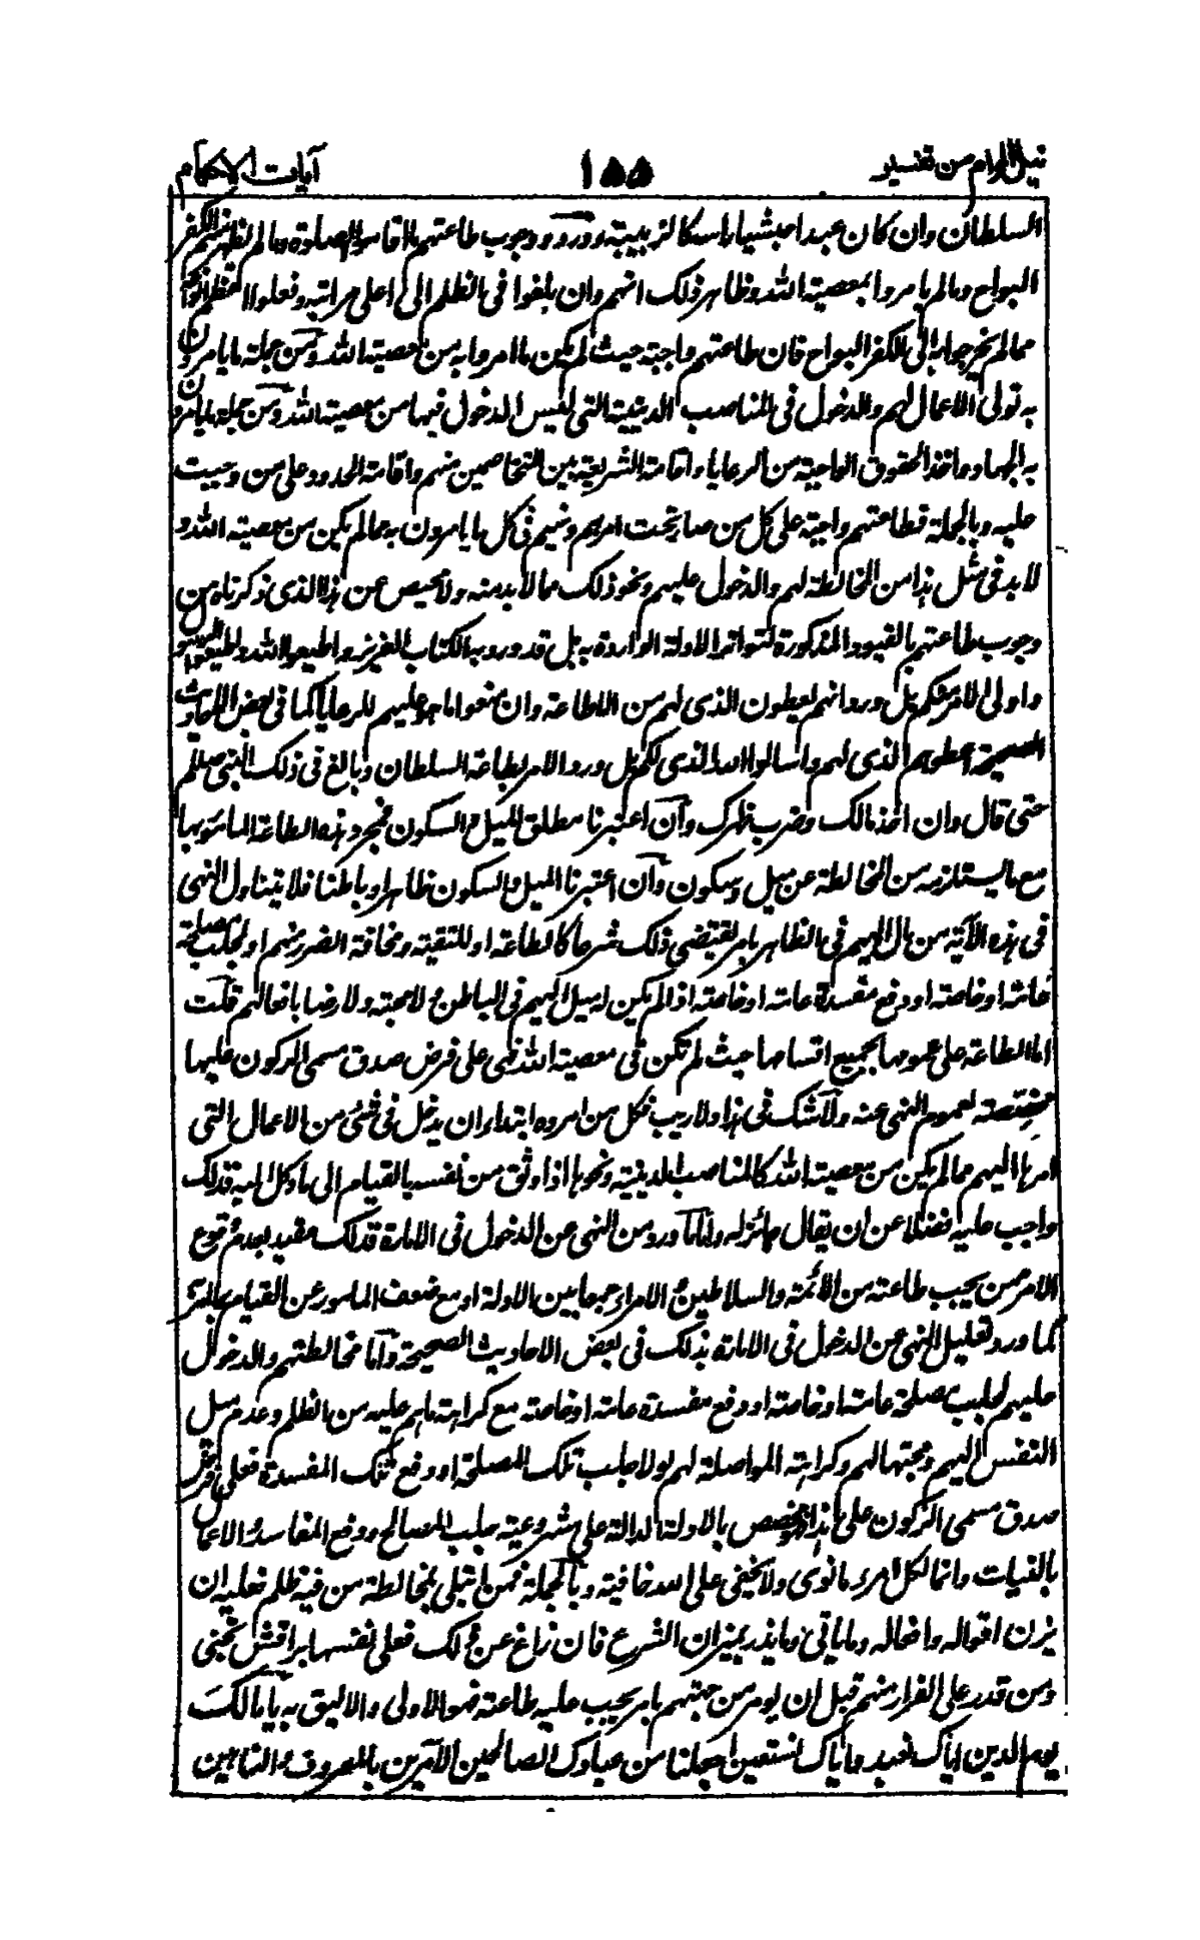 نيل المرام من تفسير ١٥٥ آيات الاحكام
السلطان وان كان عبدا حبشيا راسه كالزبيبة وورد وجوب طاعتهم ما اقاموا الصلوة وما لم يظهر منهم الكفر
البواح وما لم يامروا بمعصية الله وظاهر ذلك انهم وان بلغوا فى الظلم الى اعلى مراتبه وفعلوا اعظم انواعه
مما لم يخرجوا به الى الكفر البواح فان طاعتهم واجبة حيث لم يكن ما امروا به من معصية الله ومن جملة ما يامرون
به تولى الاعمال لهم والدخول فى المناصب الدينية التى ليس الدخول فيها من معصية الله ومن جملة ما يامرون
به الجهاد واخذ الحقوق الواجبة من الرعايا واقامة الشريعة بين المتخاصمين منهم واقامة الحدود على من وجبت
عليه وبالجملة فطاعتهم واجبة على كل من صار تحت امرهم ونهيهم فى كل ما يامرون به مما لم يكن من معصية الله و
لا بد فى مثل هذا من المخالطة لهم والدخول عليهم ونحو ذلك مما لا بد منه ولا محيص عن هذا الذى ذكرناه من
وجوب طاعتهم بالقيود المذكورة لتواتر الادلة الواردة به بل قد ورد به الكتاب العزيز واطيعوا الله واطيعوا الرسول
واولى الامر منكم بل ورد انهم يعطون الذى لهم من الطاعة وان منعوا ما هو عليهم للرعايا كما فى بعض الاحاديث
الصحيحة اعطوهم الذى لهم واسالوا الله الذى لكم بل ورد الامر بطاعة السلطان وبالغ فى ذلك النبى صللم
حتى قال وان اخذ مالك وضرب ظهرك وان اعتبرنا مطلق الميل والسكون فمجرد هذه الطاعة المامور بها
مع ما يستلزمه من المخالطة عن ميل وسكون وان اعتبرنا الميل والسكون ظاهرا وباطنا فلا يتناول النهى
فى هذه الآية من مال اليهم فى الظاهر بامر يقتضى ذلك شرعا كالطاعة او للتقية ومخافة الضرر منهم او لجلب مصلحة
عامة او خاصة او دفع مفسدة عامة او خاصة اذا لم يكن له ميل اليهم فى الباطن ولا محبة ولا رضا بافعالهم قلت
اما الطاعة على عمومها بجميع اقسامها حيث لم تكن فى معصية الله فهى على فرض صدق مسمى الركون عليها
مخصصة لعموم النهى عنه ولا شك فى هذا ولا ريب فكل من امروه ابتداء ان يدخل فى شئ من الاعمال التى
امرها اليهم مما لم يكن من معصية الله كالمناصب الدينية ونحوها اذا وثق من نفسه بالقيام الى ما وكل اليه فذلك
واجب عليه فضلا عن ان يقال جائز له واما ما ورد من النهى عن الدخول فى الامارة فذلك مقيد بعدم وقوع
الامر ممن يجب طاعته من الائمة والسلاطين والامراء جمعا بين الادلة او مع ضعف المامور عن القيام بما امر
كما ورد تعليل النهى عن الدخول فى الامارة بذلك فى بعض الاحاديث الصحيحة واما مخالطتهم والدخول
عليهم لجلب مصلحة عامة او خاصة او دفع مفسدة عامة او خاصة مع كراهة ما هم عليه من الظلم وعدم ميل
النفس اليهم ومحبتها لهم وكراهة المواصلة لهم لولا جلب تلك المصلحة او دفع تلك المفسدة فعلى فرض
صدق مسمى الركون على هذا فهو مخصص بالادلة الدالة على مشروعية جلب المصالح ودفع المفاسد والاعمال
بالنيات وانما لكل امرء ما نوى ولا تخفى على الله خافية وبالجملة فمن ابتلى بمخالطة من فيه ظلم فعليه ان
يزن اقواله وافعاله وما ياتى وما يذر بميزان الشرع فان زاغ عن ذلك فعلى نفسها براقش تجنى
ومن قدر على الفرار منهم قبل ان يومر من جهتهم بامر يجب عليه طاعته فهو الاولى والاليق به يا مالك
يوم الدين اياك نعبد واياك نستعين اجعلنا من عبادك الصالحين الآمرين بالمعروف والناهين